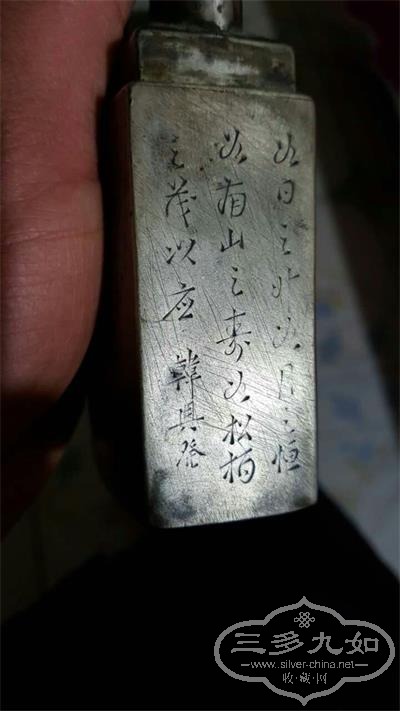 如日之升如月之恒
如南山之寿如松柏
之茂以应 韓興發
三多九如
www.silver-china.net
收·藏·网